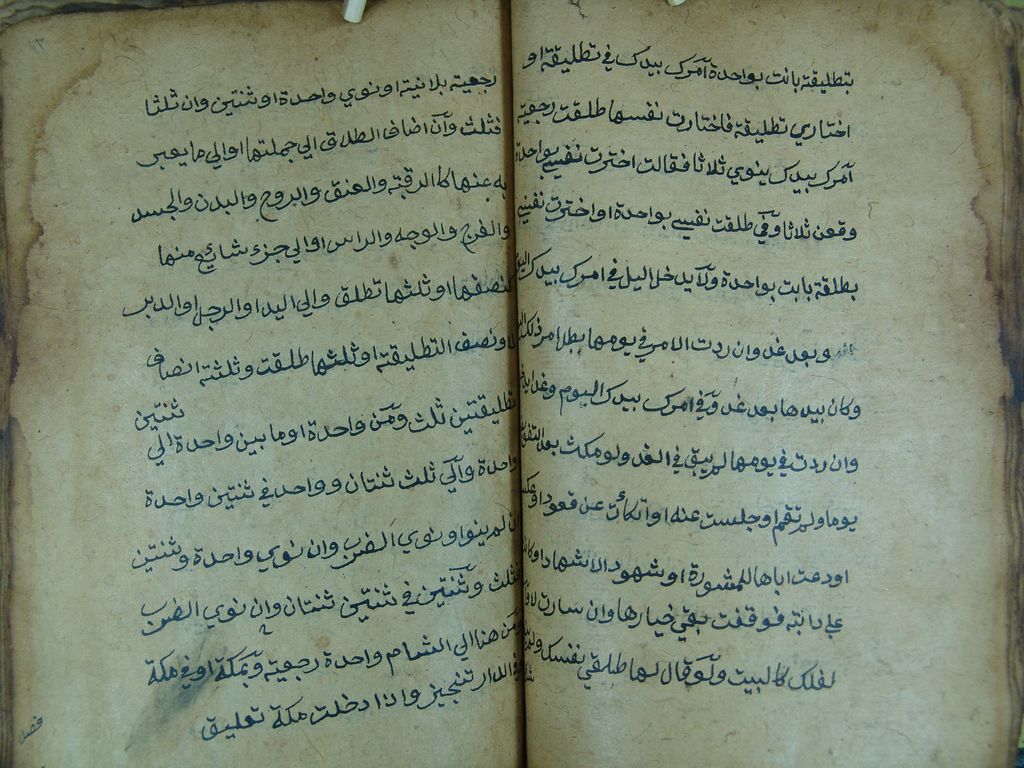 بتطليقة بانت بواحدة امرك بيدك في تطليقة او
اختاري تطليقة فاختارت نفسها طلقت رجعية
امرك بيدك ينوي ثلاثا فقالت اخترت نفسي بواحدة
وقعن ثلاثا وفي طلقت نفسي بواحدة او اخترت نفسي
بطلقة بانت بواحدة ولا يدخل اليل في امرك بيدك اليوم
وبعد غد وان ردت الامر في يومها بطل امر ذلك
وكان بيدها بعد غد وفي امرك بيدك اليوم وغدا
وان ردت في يومها لم يبق في الغد ولو مكثت بعد
يوما ولم تقم او جلست عنه او اتكأت عن قعود او عكس
او دعت اباها للمشورة او شهود الاشهاد او كا
علي دابة فوقفت بقي خيارها وان سارت لا
لفلك كالبيت ولو قال لها طلقي نفسك
رجعية بلا نية او نوي واحدة او ثنتين وان ثلثا
فثلث وان اضاف الطلاق الي جملتها او الي ما يعبر
به عنها كالرقبة والعنق والروح والبدن والجسد
والفرج والوجه والراس او الي جزء شائع منها
كنصفها او ثلثها تطلق والي اليد او الرجل او الدبر
لا ونصف التطليقة او ثلثها طلقت وثلثة انصاف
تطليقتين ثلث ومن واحدة او ما بين واحدة الي ثنتين
واحدة والي ثلث ثنتان وواحد في ثنتين واحدة
ان لم ينو او نوي الضرب وان نوي واحدة وثنتين
فثلث وثنتين في ثنتين ثنتان وان نوي الضرب
ومن هنا الي الشام واحدة رجعية وبمكة او في مكة
في الدار تنجيز واذا دخلت مكة تعليق
فصل